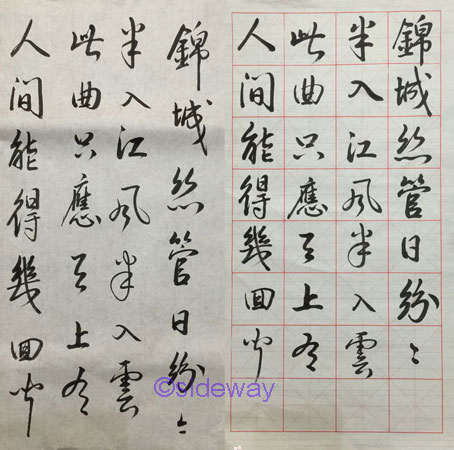 錦城絲管日紛〻
半入江風半入雲
此曲只應天上有
人間能得幾回聞
錦城絲管日紛〻
半入江風半入雲
此曲只應天上有
人間能得幾回聞
©sideway